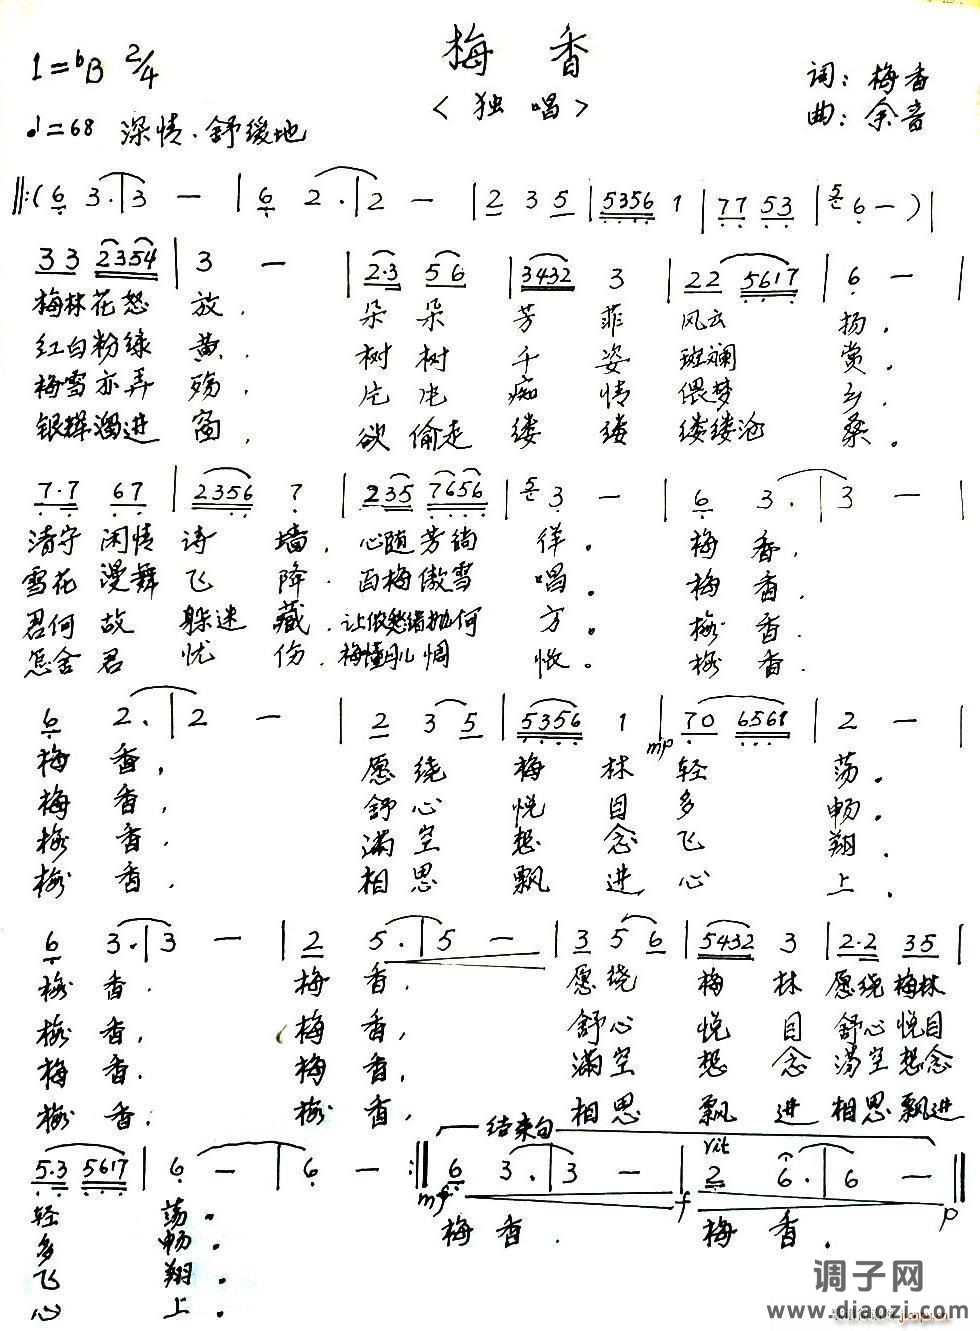 梅香
1=♭B 2/4
词：梅香
<独唱>
曲：余音
♩=68 深情.舒缓地
‖:( 6 3.|3 — | 6 2.|2 — | 2 3 5 | 5356 1 | 77 53 | 5 6 — ) |
33 2354 | 3 — | 2·3 56 | 3432 3 | 22 5617 | 6 — |
梅林花怒放. 朵朵芳菲风云扬.
红白粉绿黄. 树树千姿斑斓赏.
梅雪亦弄殇. 片片痴情偎梦乡.
银辉溜进窗. 欲偷走缕缕缕缕沧桑.
7·7 67 | 2356 7 | 235 7656 | 5 3 — | 6 3.|3 — |
清守闲情诗墙. 心随芳徜徉。梅香.
雪花漫舞飞降. 百梅傲雪唱。梅香.
君何故躲迷藏. 让侬愁绪抛何方。梅香.
怎舍君忧伤. 梅懂惆怅。梅香.
6 2.|2 — | 2 3 5 | 5356 1 | mp 70 6561 | 2 — |
梅香, 愿绕梅林轻荡.
梅香. 舒心悦目多畅.
梅香. 满空想念飞翔.
梅香. 相思飘进心上.
6 3.|3 — | 2 5.|5 — | 3 5 6 | 5432 3 | 2·2 35 |
梅香. 梅香. 愿绕梅林愿绕梅林
梅香. 梅香, 舒心悦目舒心悦目
梅香. 梅香, 满空想念满空想念
梅香. 梅香, 相思飘进相思飘进
结束句
rit
5·3 5617 | 6 — | 6 — :‖ 6 3.|3 — | 2 6.|6 — ‖
mp f p
轻荡. 梅香. 梅香.
多畅.
飞翔.
心上.
调子网
www.diaozi.com